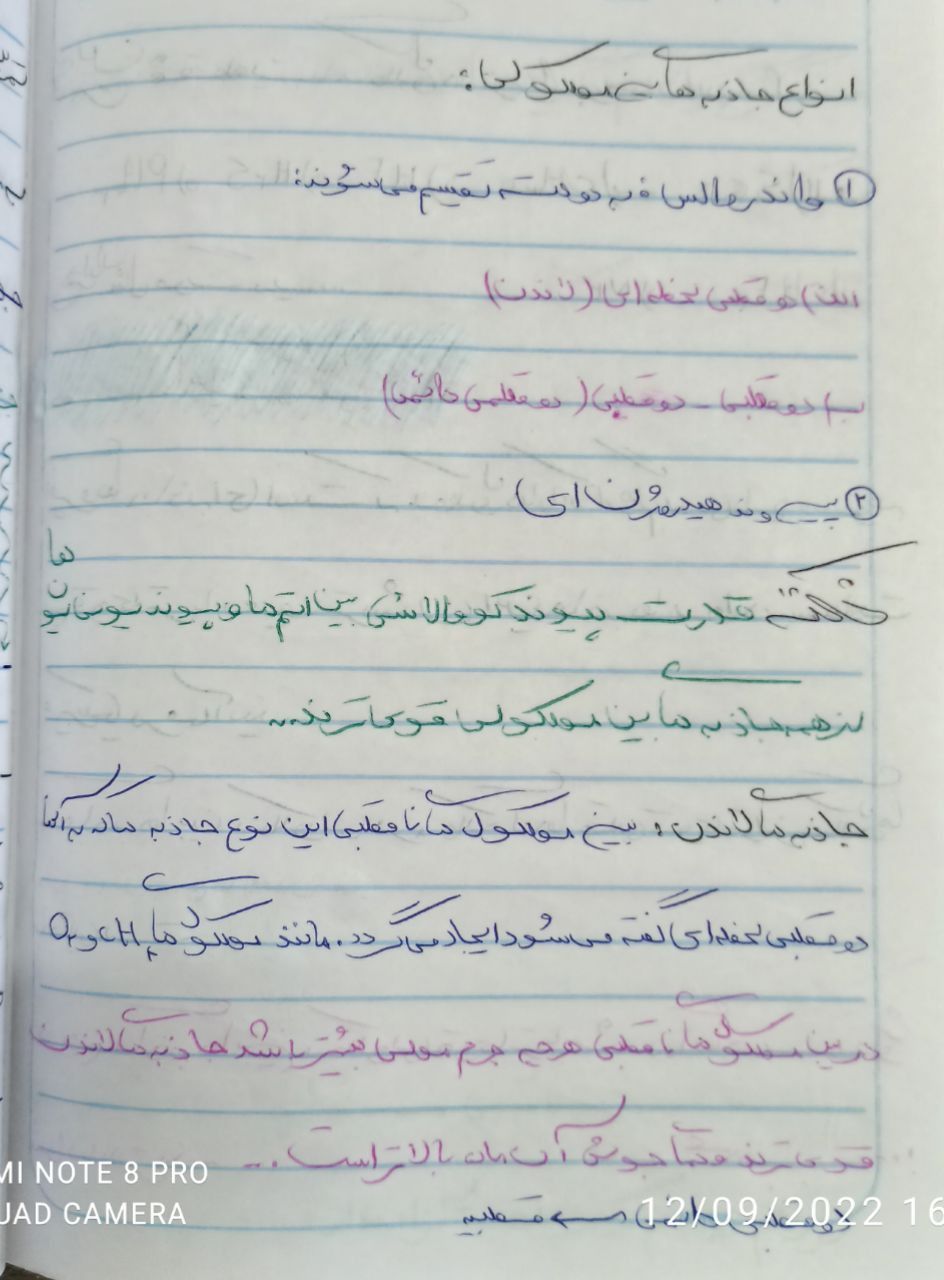 انواع جاذبه های بین مولکولی:
① واندروالس: به دو دسته تقسیم می شوند:
الف) دو قطبی لحظه ای (لاندن)
ب) دو قطبی - دو قطبی (دو قطبی دائمی)
② پیوند هیدروژن ای
ها
نکته قدرت پیوند کووالانسی بین اتم ها و پیوند یونی
از همه جاذبه های بین مولکولی قوی ترند...
جاذبه های لاندن: بین مولکول های ناقطبی این نوع جاذبه ها که به آنها
دو قطبی لحظه ای گفته می شود ایجاد می گردد. مانند مولکول های CH₄ و O₂
در بین مولکول های ناقطبی هرچه جرم مولی بیشتر باشد جاذبه های لاندن
قوی ترند و نقطه جوش آن ها بالاتر است...
دو قطبی دائمی قطبیه
MI NOTE 8 PRO
UAD CAMERA
12/09/2022 16